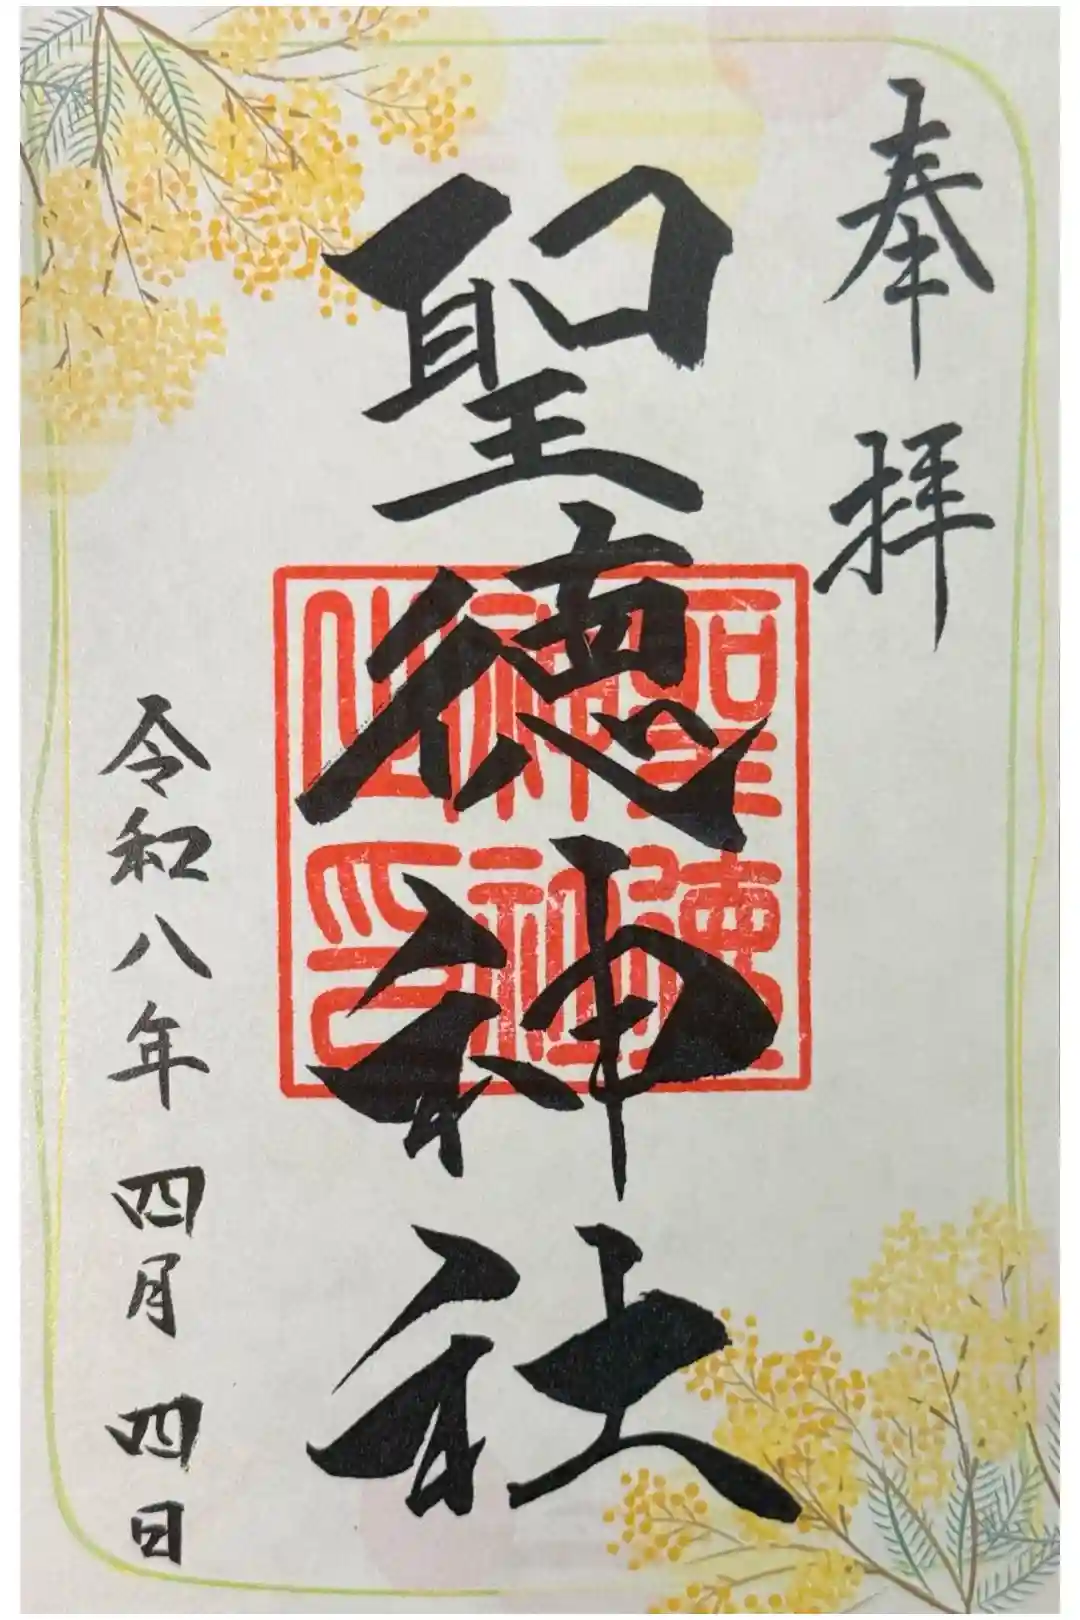 奉拝
聖徳神社
聖徳
神社
之印
令和八年四月四日